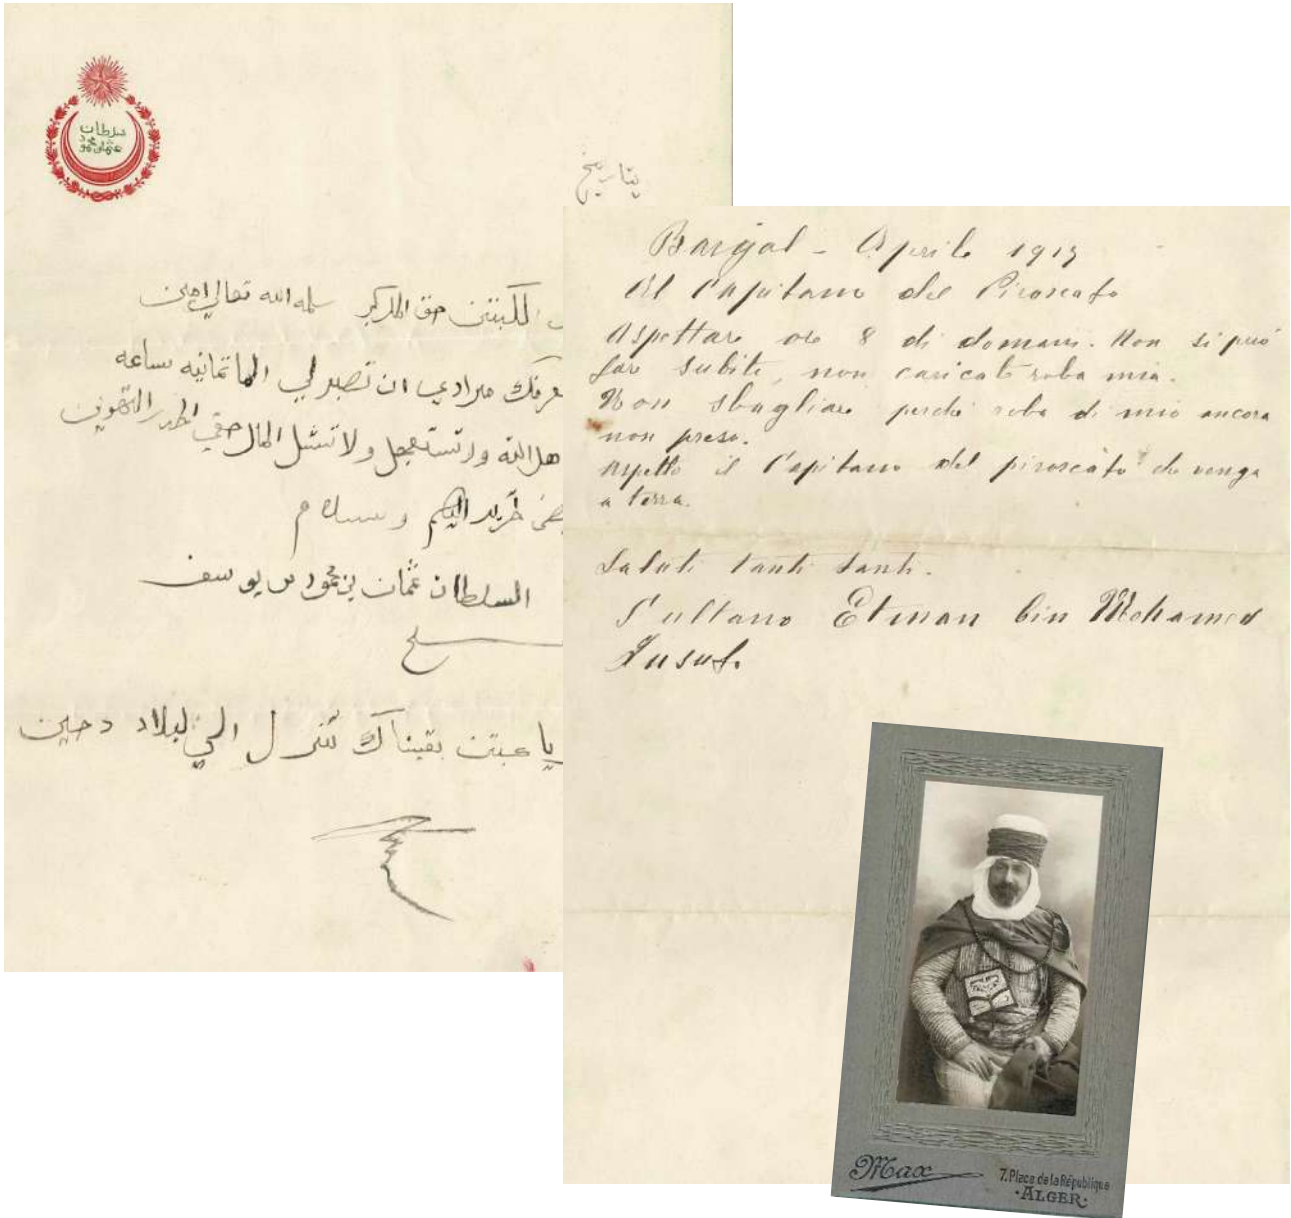 سلطان
عثمان محمود
بتاريخ
الكبتن حق المركب سلمه الله تعالى امين
مرادي ان تصبر لي الما ثمانيه ساعه
ولا تشل المال حقي
اليكم وسلام
السلطان عثمان بن محمود بن يوسف
تنزل الي البلاد دحين
Bargal - Aprile 1919
Al Capitano del Piroscafo
Aspettare ore 8 di domani. Non si può
fare subito, non caricate roba mia.
Non sbagliare perchè roba di mio ancora
non preso.
Aspetto il Capitano del piroscafo che venga
a terra.
Saluti tanti tanti.
Sultano Etman bin Mohamed
Iusuf.
Max
7, Place de la République
·ALGER·